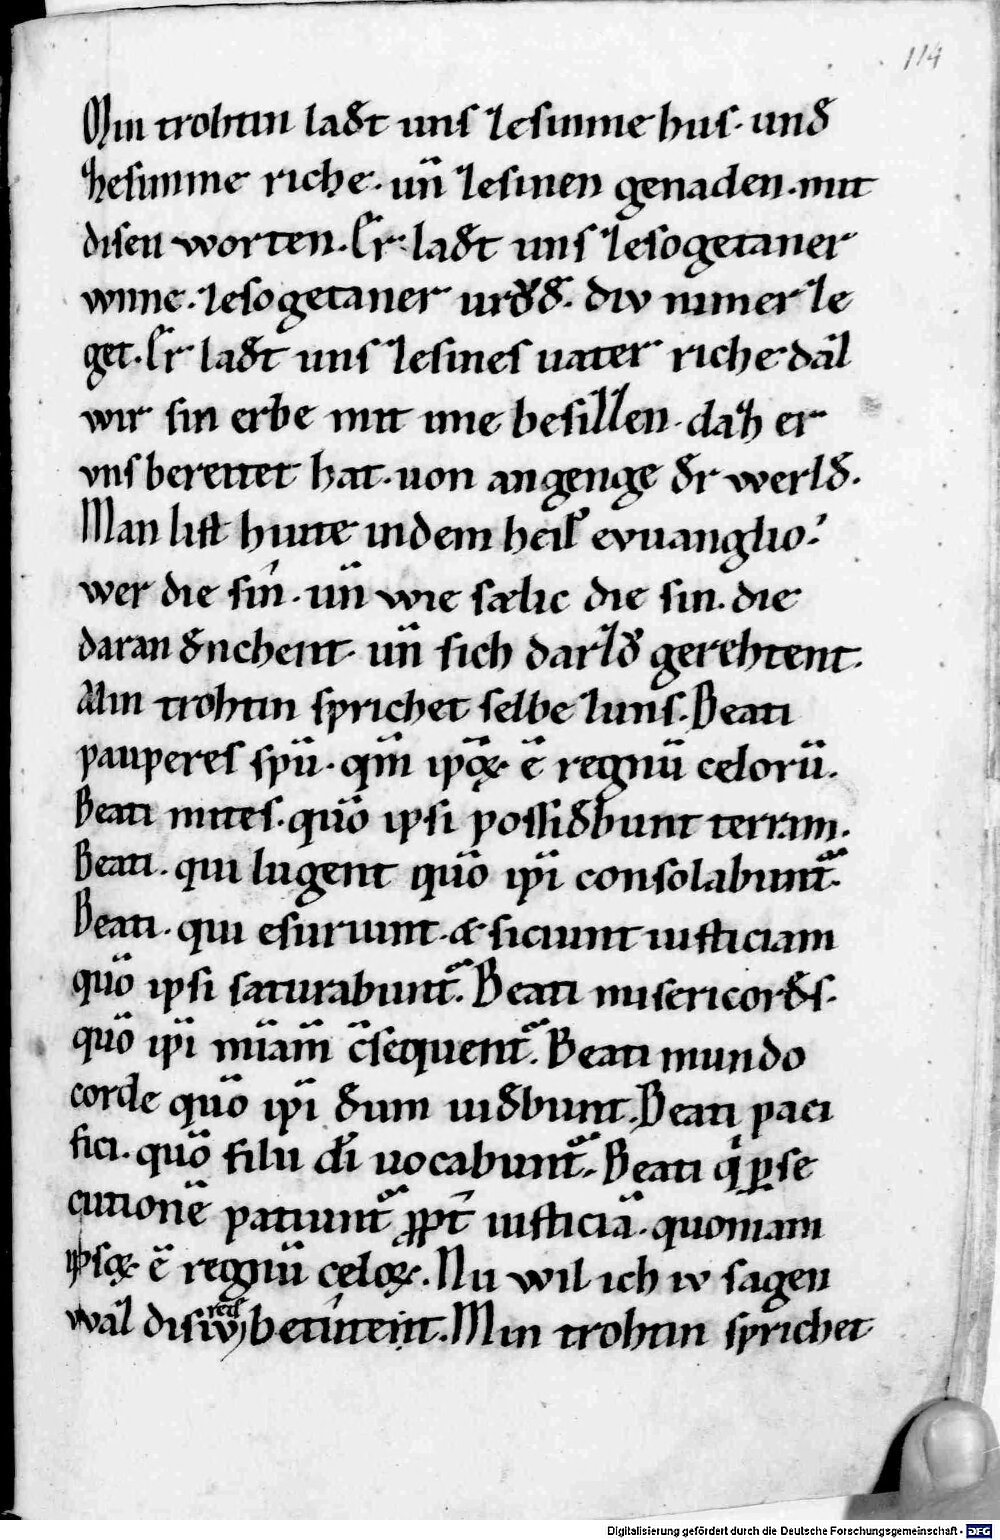 114
Min trohtin ladet uns zesinme hus· und
zesinme riche· un̄ zesinen genaden· mit
disen worten. Er ladet uns zesogetaner
wnne· zesogetaner urǒde· div nimer ze
get. Er ladet uns zesines uater riche dāz
wir sin erbe mit ime besizzen· daz er
vns bereitet hat· uon angenge der werlde.
Man list hiute in dem heil evuanglio·
wer die sin· un̄ wie sælic die sin· die
daran denchent· un̄ sich darzů gerehtent.
Min trohtin sprichet selbe zuns. Beati
pauperes spū· qm̄ ipoꝝ ē regnū celorū.
Beati mites· quō ipsi possidebunt terram.
Beati· qui lugent quō ip̄i consolabunt᷒.
Beati· qui esuriunt· & siciunt iusticiam
quō ipsi saturabunt᷒. Beati misericordes·
quō ip̄i mīam c̄sequent᷒. Beati mundo
corde quō ip̄i deum uidebunt. Beati paci
fici· quō filii di uocabunt᷒. Beati q̍ ꝑse
cutionē patiunt᷒ ꝓpt̄ iusticiā· quoniam
ipsoꝝ ē regnū celoꝝ. Nu wil ich iv sagen
waz disiv redi betiutent. Min trohtin sprichet
Digitalisierung gefördert durch die Deutsche Forschungsgemeinschaft - DFG